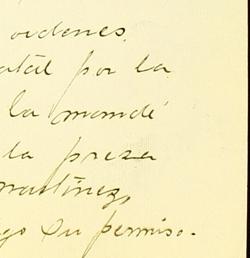 ordenes.
por la
la mandé
la presa
martinez,
su permiso.